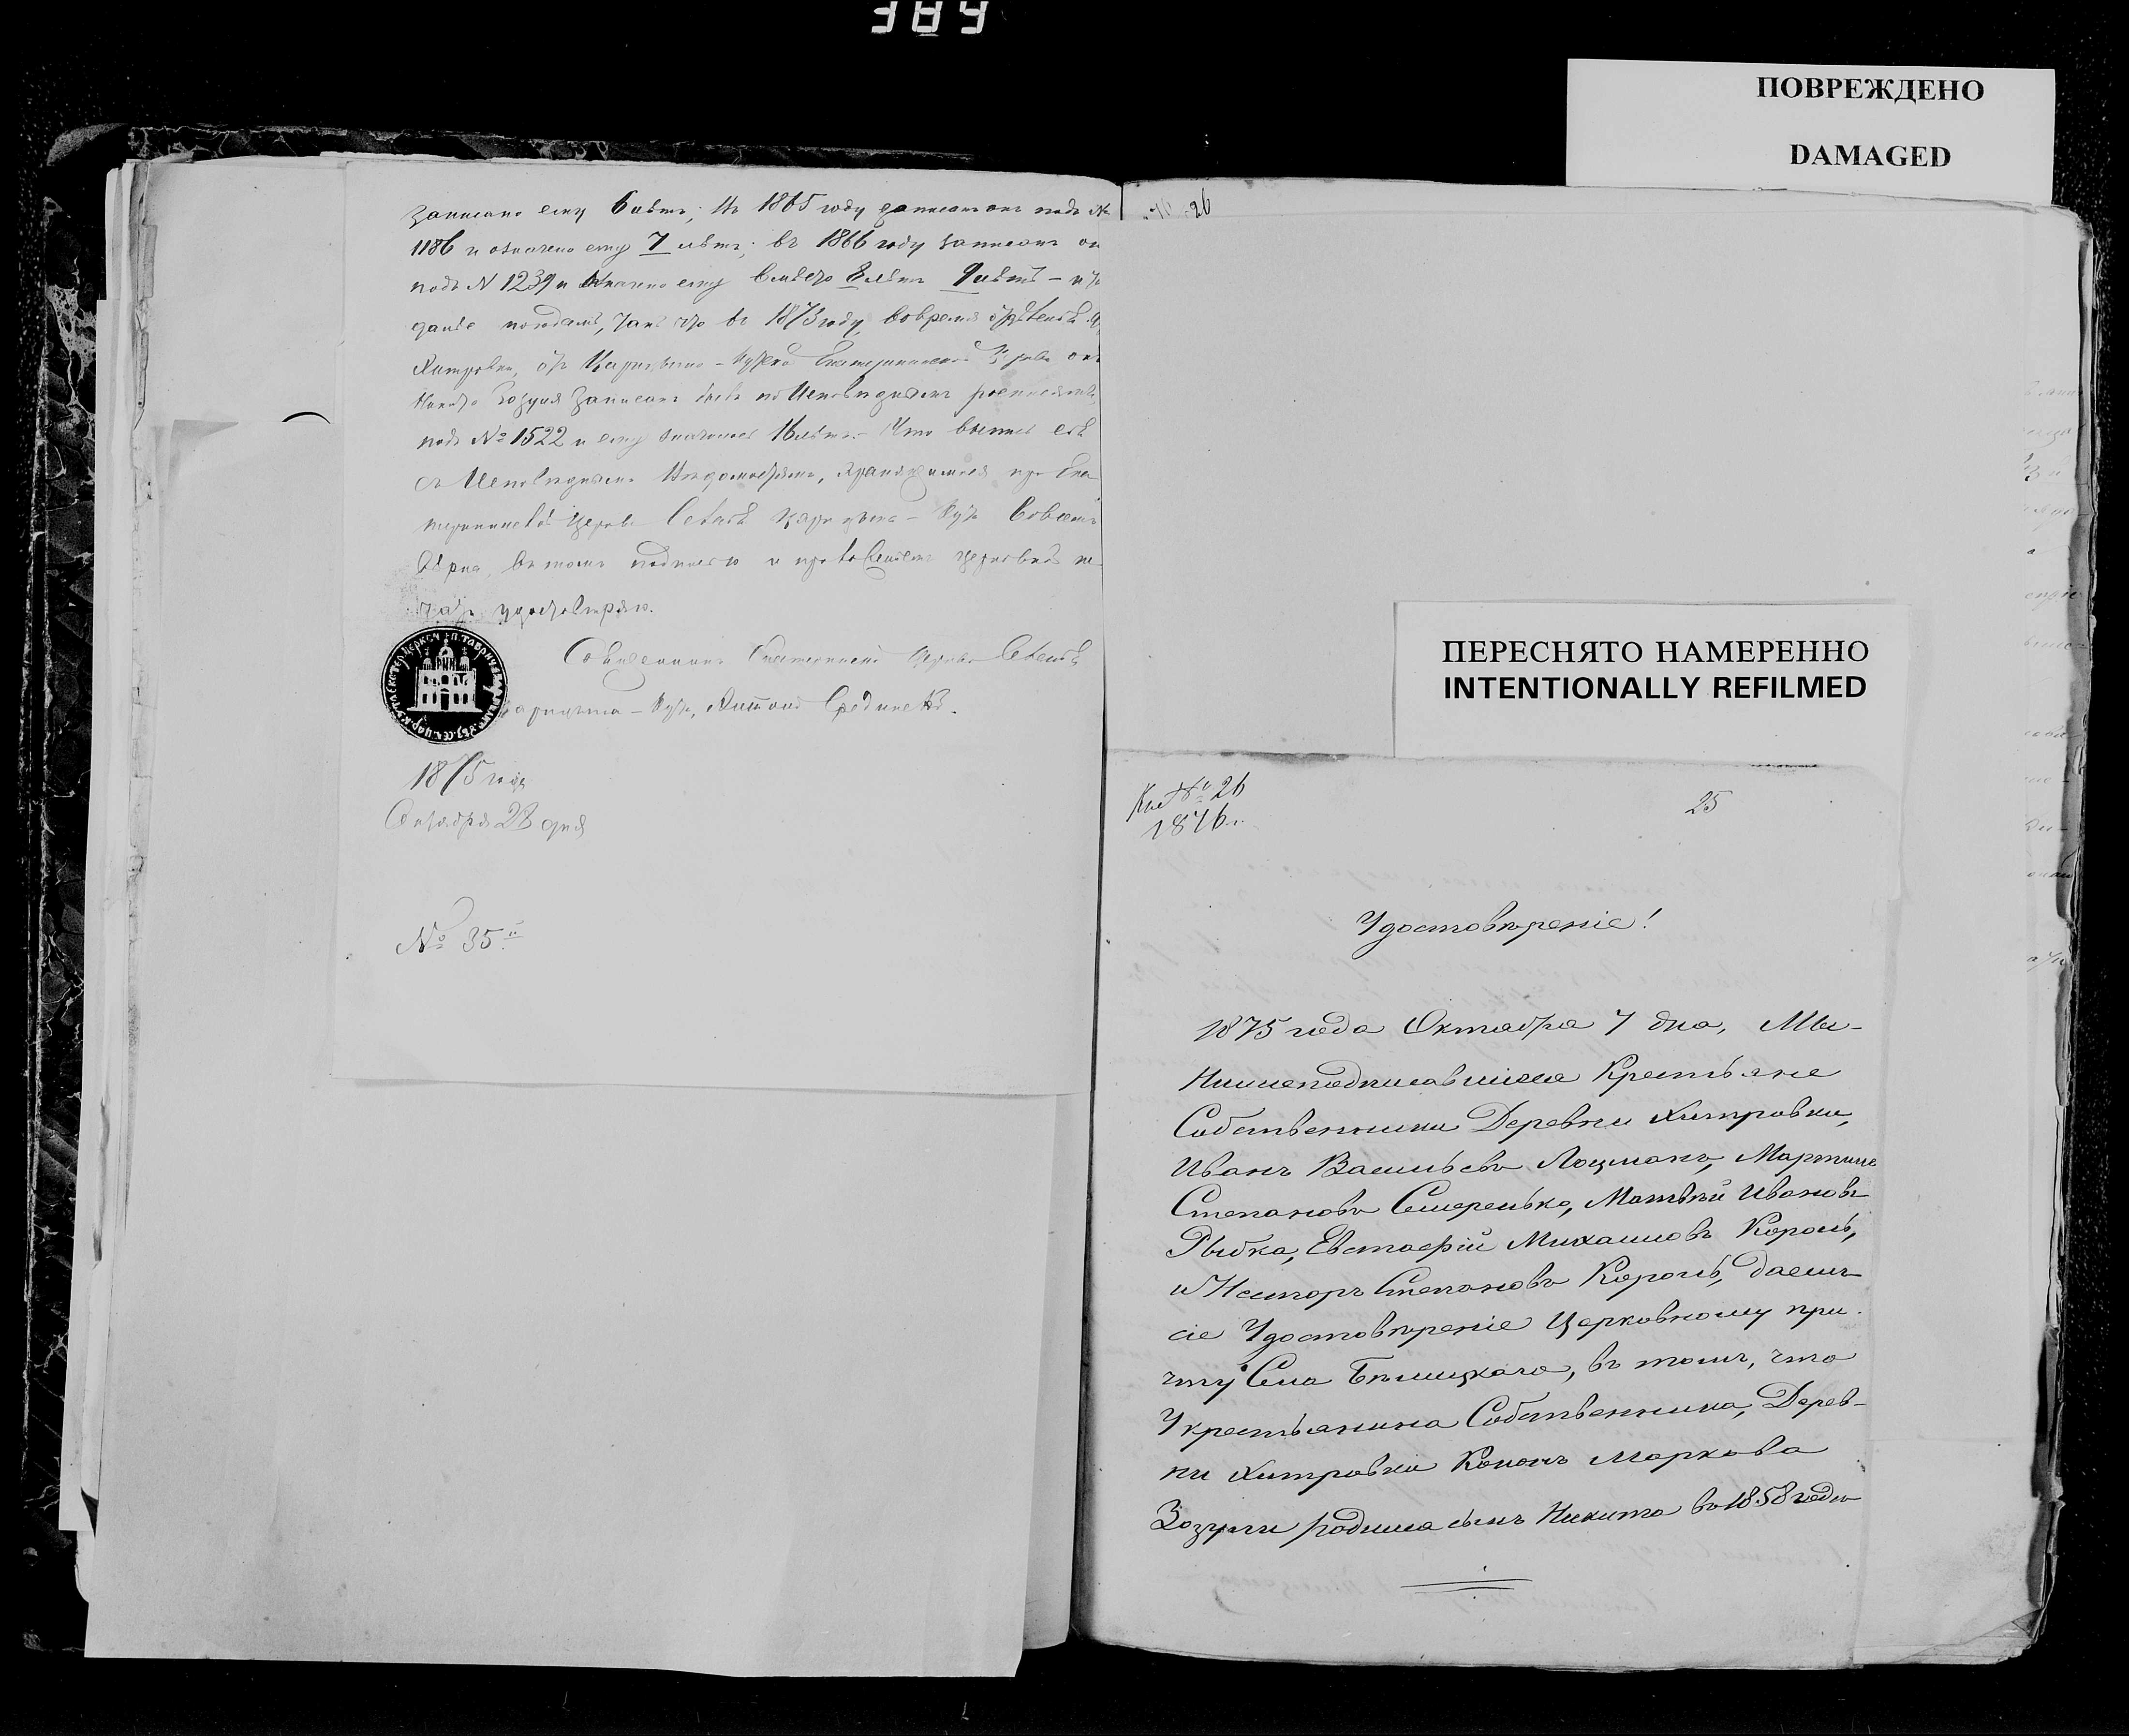 389
ПОВРЕЖДЕНО
DAMAGED
записано ему 6 лѣтъ; въ 1865 году записанъ онъ подъ №
1186 и означено ему 7 лѣтъ; въ 1866 году записанъ он
подъ N 1239 и означено ему вмѣсто 8 лѣтъ 9 лѣтъ – и т
далѣе погодамъ, такъ что въ 1873 году, во время
Хитровки, отъ Царицыно-Кутской Екатерининской Церкви он
Никита Зозуля записанъ былъ по Исповѣднымъ росписямъ,
подъ № 1522 и ему значилось 16 лѣтъ. – Что выпись сія
съ Исповѣдными Вѣдомостями, хранящимися при Ека
терининской Церкви Села Царицына-Кута во всемъ
вѣрна, въ томъ подписью и приложеніемъ церковной пе
чати удостовѣряю.
Священникъ Екатерининской Церкви Села
Царицына-Кута, Антоній
1875 года
Октября 28 дня
№ 35.й
26
ПЕРЕСНЯТО НАМЕРЕННО
INTENTIONALLY REFILMED
№ 26
1876 г.
25
Удостовѣреніе!
1875 года Октября 7 дня, Мы-
Нижеподписавшіяся Крестьяне
Собственники Деревни Хитровки,
Иванъ Васильевъ Лоцманъ, Мартинъ
Степановъ Семеренько, Матвѣй Ивановъ
Рыбка, Евстафій Михаиловъ Король,
и Несторъ Степановъ Король, даемъ
сіе Удостовѣреніе Церковному при-
чту Села Бѣлицкаго, въ томъ, что
У крестьянина Собственника, Дерев-
ни Хитровки Конона Маркова
Зозули родился сынъ Никита въ 1858 годѣ